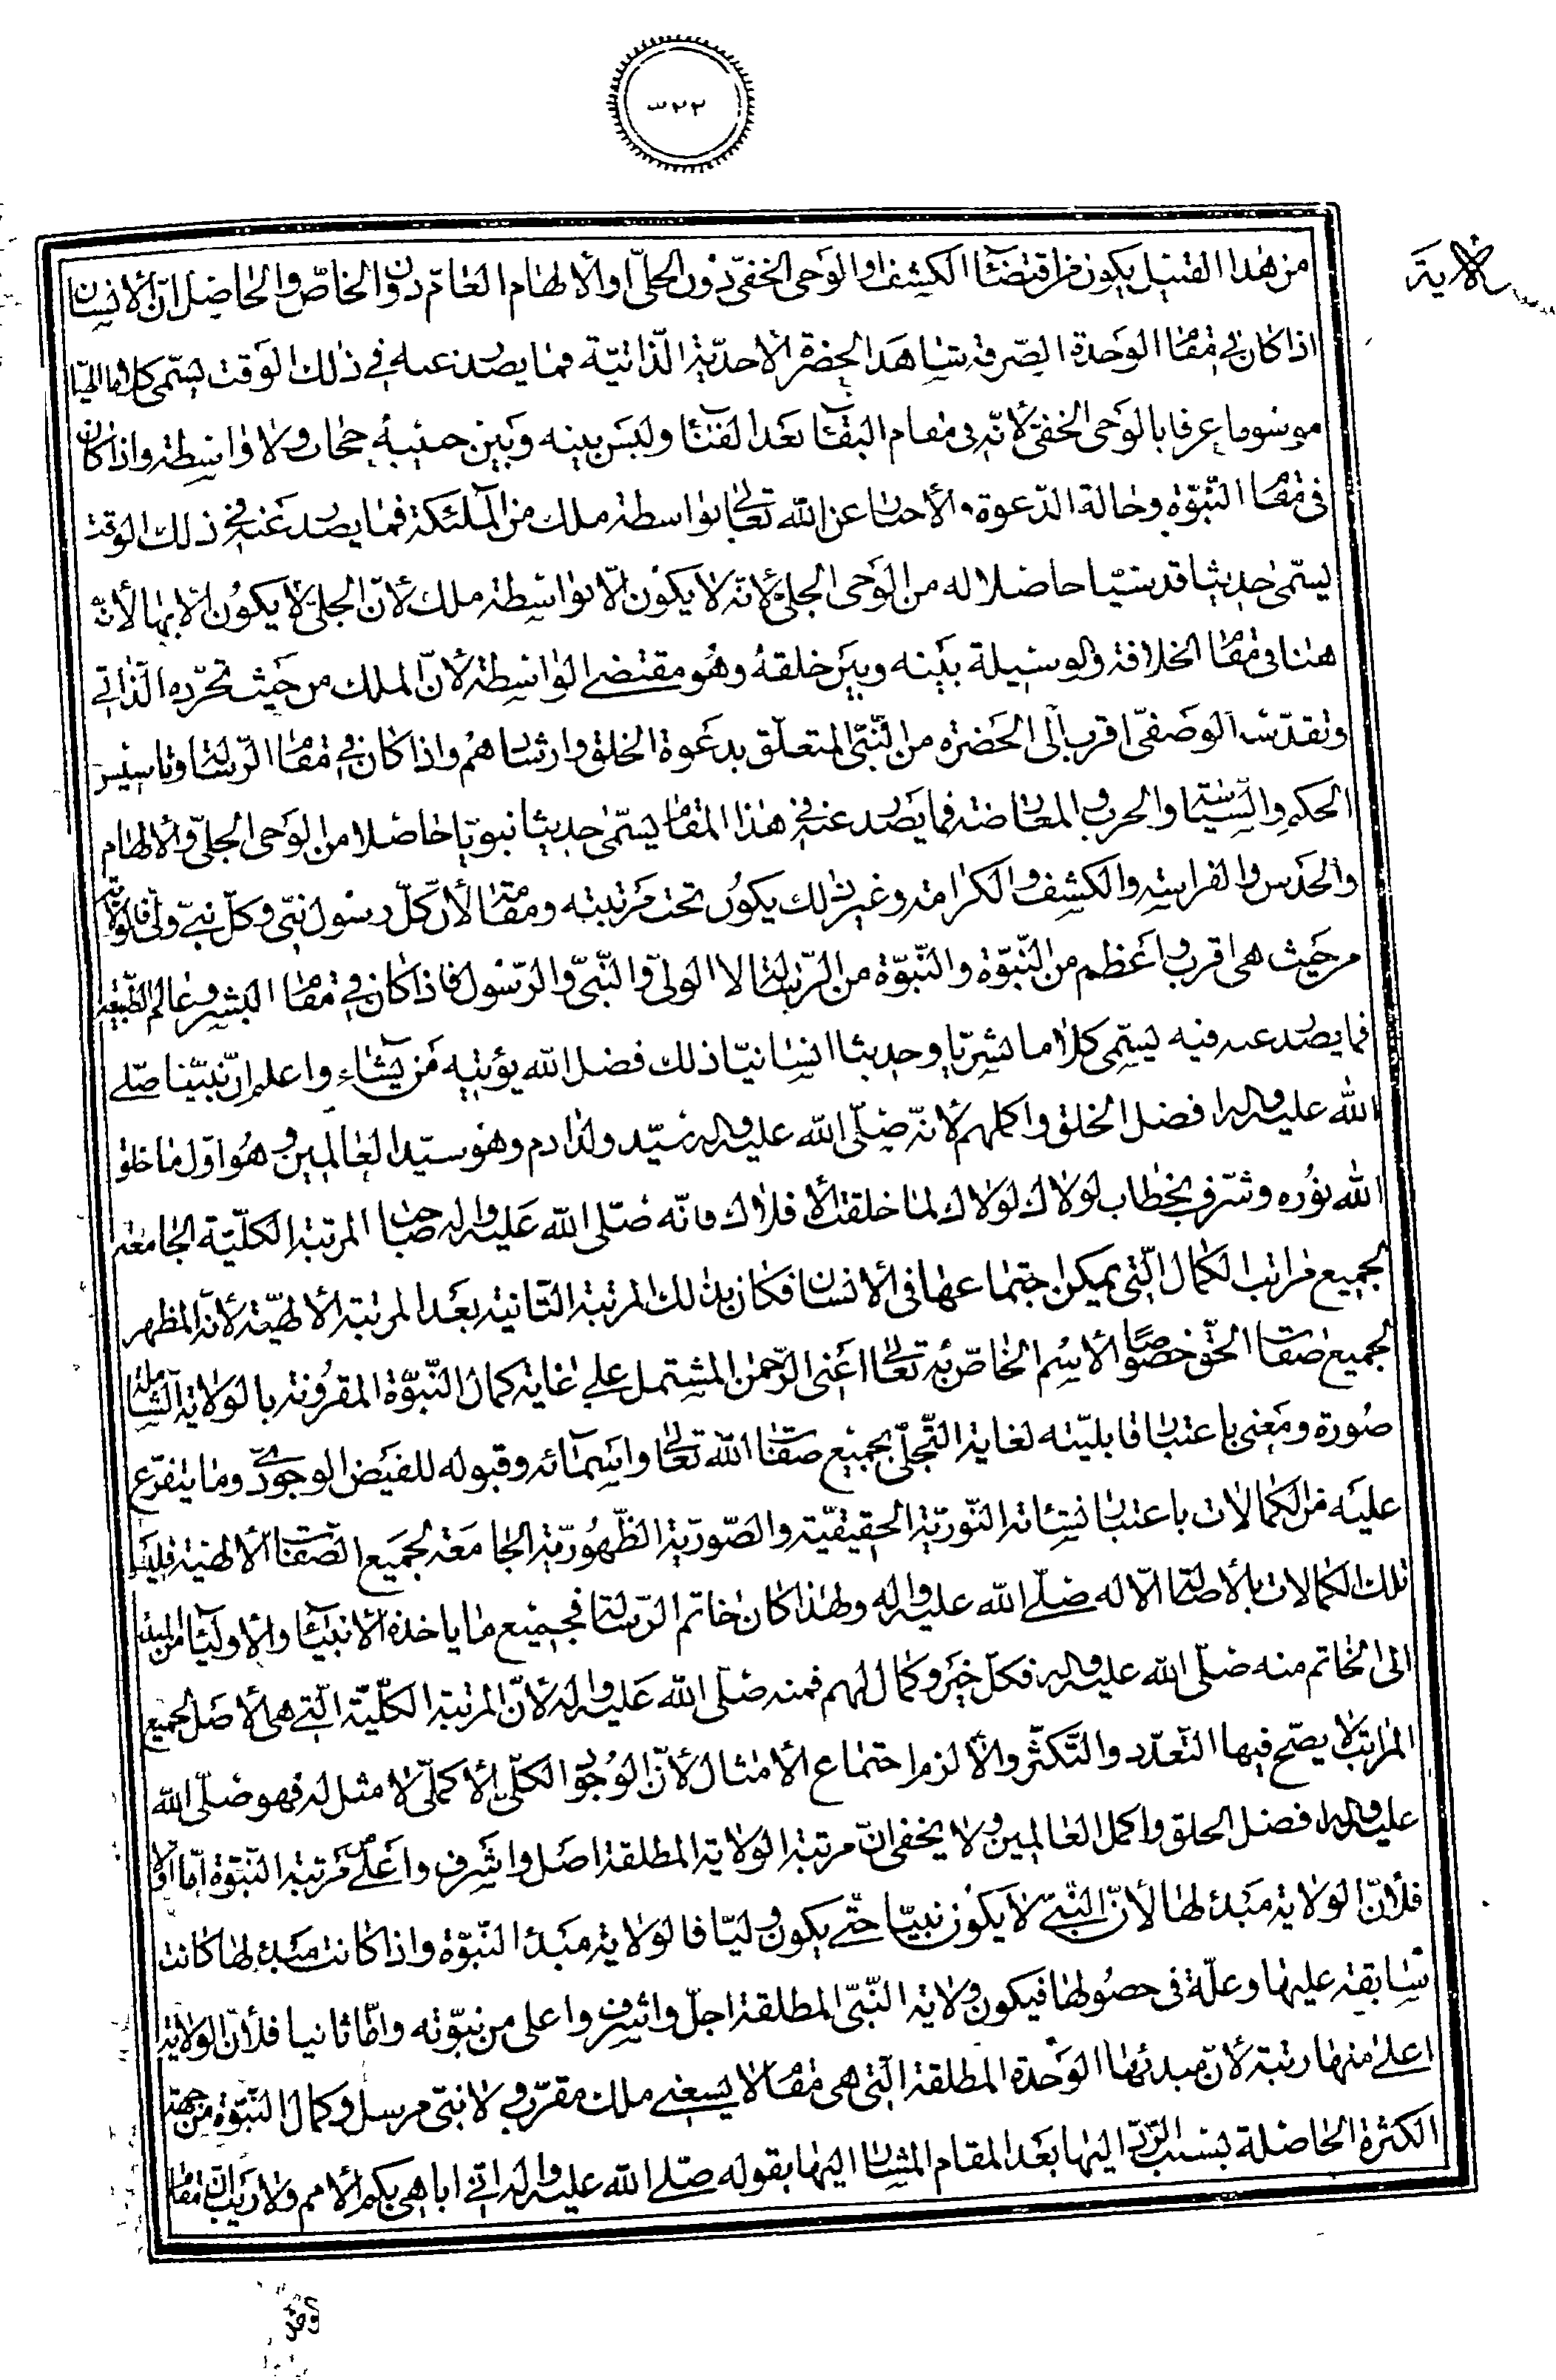 ٣٢٢
الآية
من هذا القبيل يكون من اقتضاء الكشف والوحى الخفىّ دون الجلىّ او الالهام العامّ دون الخاصّ والحاصل انّ الانسان
اذا كان فى مقام الوحدة الصّرفة شاهد الحضرة الاحديّة الذّاتيّة فما يصدر عنه فى ذلك الوقت يسمّى كلاما الهيّا
موسوما عرفا بالوحى الخفى لانّه فى مقام البقاء بعد الفناء وليس بينه وبين حبيبه حجاب ولا واسطة واذا كان
فى مقام النّبوّة وحالة الدّعوة والاخبار عن الله تعالى بواسطة ملك من الملئكة فما يصدر عنه فى ذلك الوقت
يسمّى حديثا قدسيّا حاصلا له من الوحى الجلى لانّه لا يكون الّا بواسطة ملك لانّ الجلىّ لا يكون الّا بها لانّه
هنا فى مقام الخلافة والوسيلة بينه وبين خلقه وهو مقتضى الواسطة لانّ الملك من حيث تجرّده الذّاتى
وتقدّسه الوصفىّ اقرب الى الحضرة من النّبىّ المتعلّق بدعوة الخلق وارشادهم واذا كان فى مقام الرّسالة وتاسيس
الحكم والسّياسة والحرب والمعارضة فما يصدر عنه فى هذا المقام يسمّى حديثا نبويّا حاصلا من الوحى الجلىّ والالهام
والحدس والفراسة والكشف والكرامة وغير ذلك يكون تحت مرتبته ومقامه لانّ كلّ رسول نبىّ وكلّ نبىّ ولىّ فالولاية
من حيث هى اقرب واعظم من النّبوّة والنّبوّة من الرّسالة لا الولىّ والنّبىّ والرّسول فاذا كان فى مقام البشر وعالم الطّبيعة
فما يصدر عنه فيه يسمّى كلاما بشريّا وحديثا انسانيّا ذلك فضل الله يؤتيه من يشاء واعلم انّ نبيّنا صلّى
الله عليه واله افضل الخلق واكملهم لانّه صلّى الله عليه واله سيّد ولد ادم وهو سيّد العالمين وهو اوّل ما خلق
الله نوره وشرّف بخطاب لولاك لولاك لما خلقت الافلاك فانّه صلّى الله عليه واله صاحب المرتبة الكلّيّة الجامعة
لجميع مراتب الكمال الّتى يمكن اجتماعها فى الانسان فكان بذلك المرتبة الثّانية بعد المرتبة الالهيّة لانّه المظهر
لجميع صفات الحقّ خصوصا الاسم الخاصّ به تعالى اعنى الرّحمن المشتمل على غاية كمال النّبوّة المقرونة بالولاية الشّاملة
صورة ومعنى باعتبار قابليّته لغاية التّجلّى بجميع صفات الله تعالى واسمائه وقبوله للفيض الوجودىّ وما يتفرّع
عليه من الكمالات باعتبار نشاته النّوريّة الحقيقيّة والصّوريّة الظّهوريّة الجامعة لجميع الصّفات الالهيّة فليس
تلك الكمالات بالاصالة الّا له صلّى الله عليه واله ولهذا كان خاتم الرّسالة فجميع ما ياخذه الانبياء والاولياء من المبدء
الى الخاتم منه صلّى الله عليه واله فكلّ خير وكمال لهم فمنه صلّى الله عليه واله لانّ المرتبة الكلّيّة الّتى هى الاصل لجميع
المراتب لا يصحّ فيها التّعدّد والتّكثّر والّا لزم اجتماع الامثال لانّ الوجود الكلّى الاكملى لا مثل له فهو صلّى الله
عليه واله افضل الخلق واكمل العالمين ولا يخفى انّ مرتبة الولاية المطلقة اصل واشرف واعلى من مرتبة النّبوّة امّا اوّلا
فلانّ الولاية مبدء لها لانّ النّبىّ لا يكون نبيّا حتّى يكون وليّا فالولاية مبدء النّبوّة واذا كانت مبدء لها كانت
سابقة عليها وعلّة فى حصولها فيكون ولاية النّبىّ المطلقة اجلّ واشرف واعلى من نبوّته وامّا ثانيا فلانّ الولاية
اعلى منها رتبة لانّ مبدئها الوحدة المطلقة الّتى هى مقام لا يسعنى ملك مقرّب ولا نبىّ مرسل وكمال النّبوّة من جهة
الكثرة الحاصلة بسبب الرّدّ اليها بعد المقام المشار اليها بقوله صلّى الله عليه واله انّى اباهى بكم الامم ولا ريب انّ مقام